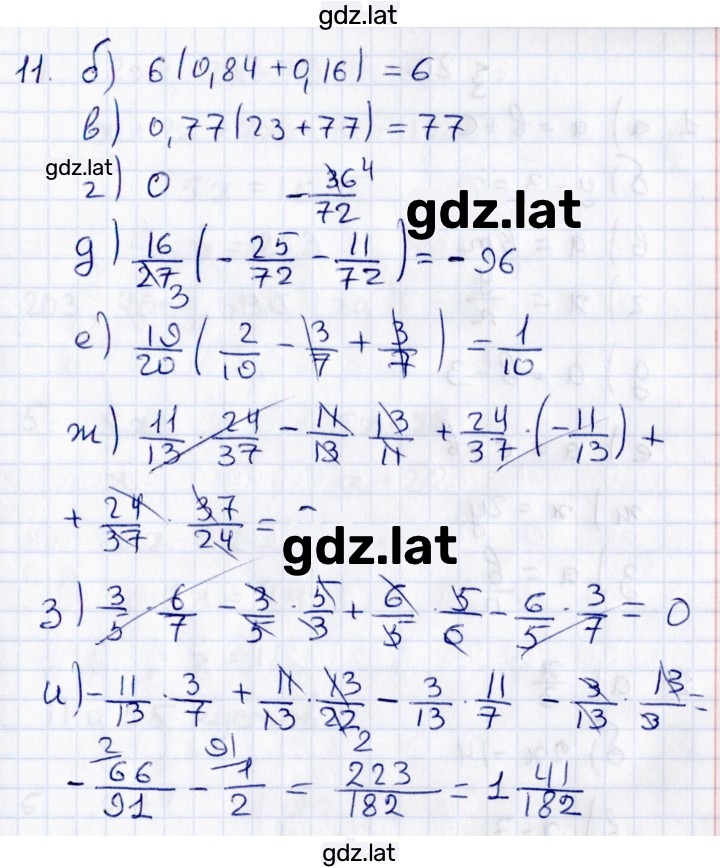 gdz.lat
11. б) 6(0,84 + 0,16) = 6
в) 0,77(23 + 77) = 77
gdz.lat
г) 0 - 36 4 / 72
gdz.lat
д) 16/27 3 (- 25/72 - 11/72) = - 96
е) 19/20 (2/10 - 3/7 + 3/7) = 1/10
ж) 11/13 · 24/37 - 11/13 · 13/11 + 24/37 · (- 11/13) +
+ 24/37 · 37/24 =
gdz.lat
з) 3/5 · 6/7 - 3/5 · 5/3 + 6/5 · 5/6 - 6/5 · 3/7 = 0
и) - 11/13 · 3/7 + 11/13 · 13/22 2 - 3/13 · 11/7 - 3/13 · 13/3 =
- 66/91 2 - 1/2 91 = 223/182 = 1 41/182
gdz.lat